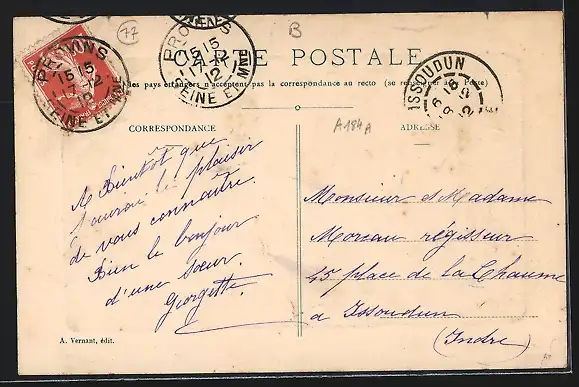 77
B
CARTE POSTALE
PROVINS
15 15
17-12
SEINE ET MNE
PROVINS
15 15
17-12
SEINE ET MNE
ISSOUDUN
les pays étrangers n'acceptent pas la correspondance au recto (se renseigner à la Poste)
A184A
CORRESPONDANCE
ADRESSE
A Bientôt que
j'aurai le plaisir
de vous connaître.
Bien le bonjour
d'une sœur.
Georgette.
Monsieur et Madame
Moreau régisseur
45 place de la Chaume
a Issoudun
(Indre)
A. Vernant, édit.